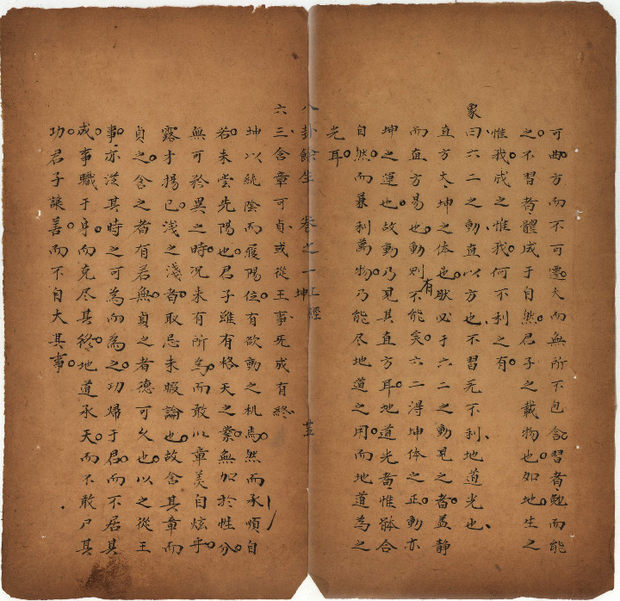 可曲方而不可遷大而無所不包含習者勉而能
之不習者醒成于自然君子之載物也如地生之
惟我成之惟我何不利之有
象曰六二之動直以方也不習无不利地道光也
直方大坤之体也肰必于六二之動見之者盖静
而直方易也動則有不能矣六二得坤体之正動亦
坤之運也故動乃見其直方耳地道光者惟骵合
自然而蕪利萬物乃能尽地道之用而地道為之
光耳
八卦餘生 卷之一 上經 坤 十五
六三含章可貞或從王事无成有終
坤以純陰而履陽位有欲動之机焉然而承順自
若未尝先陽也君子雖有格天之業無加於性分
無可矜異之時况未有所為而敢以章美自炫乎
露才揚已浅之淺者取忌未暇論也故含其章而
貞之含之者有若無貞之者德可久也以之從王
事亦渋其時之可為而為之功歸于君而不居其
成事職于身而克尽其終地道承天而不敢尸其
功君子讓善而不自大其事